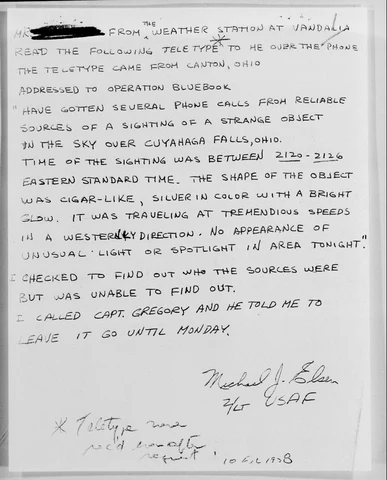 MR. FROM THE WEATHER STATION AT VANDALIA
READ THE FOLLOWING TELETYPE * TO ME OVER THE PHONE
THE TELETYPE CAME FROM CANTON, OHIO
ADDRESSED TO OPERATION BLUEBOOK
"HAVE GOTTEN SEVERAL PHONE CALLS FROM RELIABLE
SOURCES OF A SIGHTING OF A STRANGE OBJECT
IN THE SKY OVER CUYAHAGA FALLS, OHIO.
TIME OF THE SIGHTING WAS BETWEEN 2120-2126
EASTERN STANDARD TIME. THE SHAPE OF THE OBJECT
WAS CIGAR-LIKE, SILVER IN COLOR WITH A BRIGHT
GLOW. IT WAS TRAVELING AT TREMENDIOUS SPEEDS
IN A WESTERNLY DIRECTION. NO APPEARANCE OF
UNUSUAL LIGHT OR SPOTLIGHT IN AREA TONIGHT."
I CHECKED TO FIND OUT WHO THE SOURCES WERE
BUT WAS UNABLE TO FIND OUT.
I CALLED CAPT. GREGORY AND HE TOLD ME TO
LEAVE IT GO UNTIL MONDAY.
Michael J.
2/LT USAF
* Teletype
rec'd
request
1958